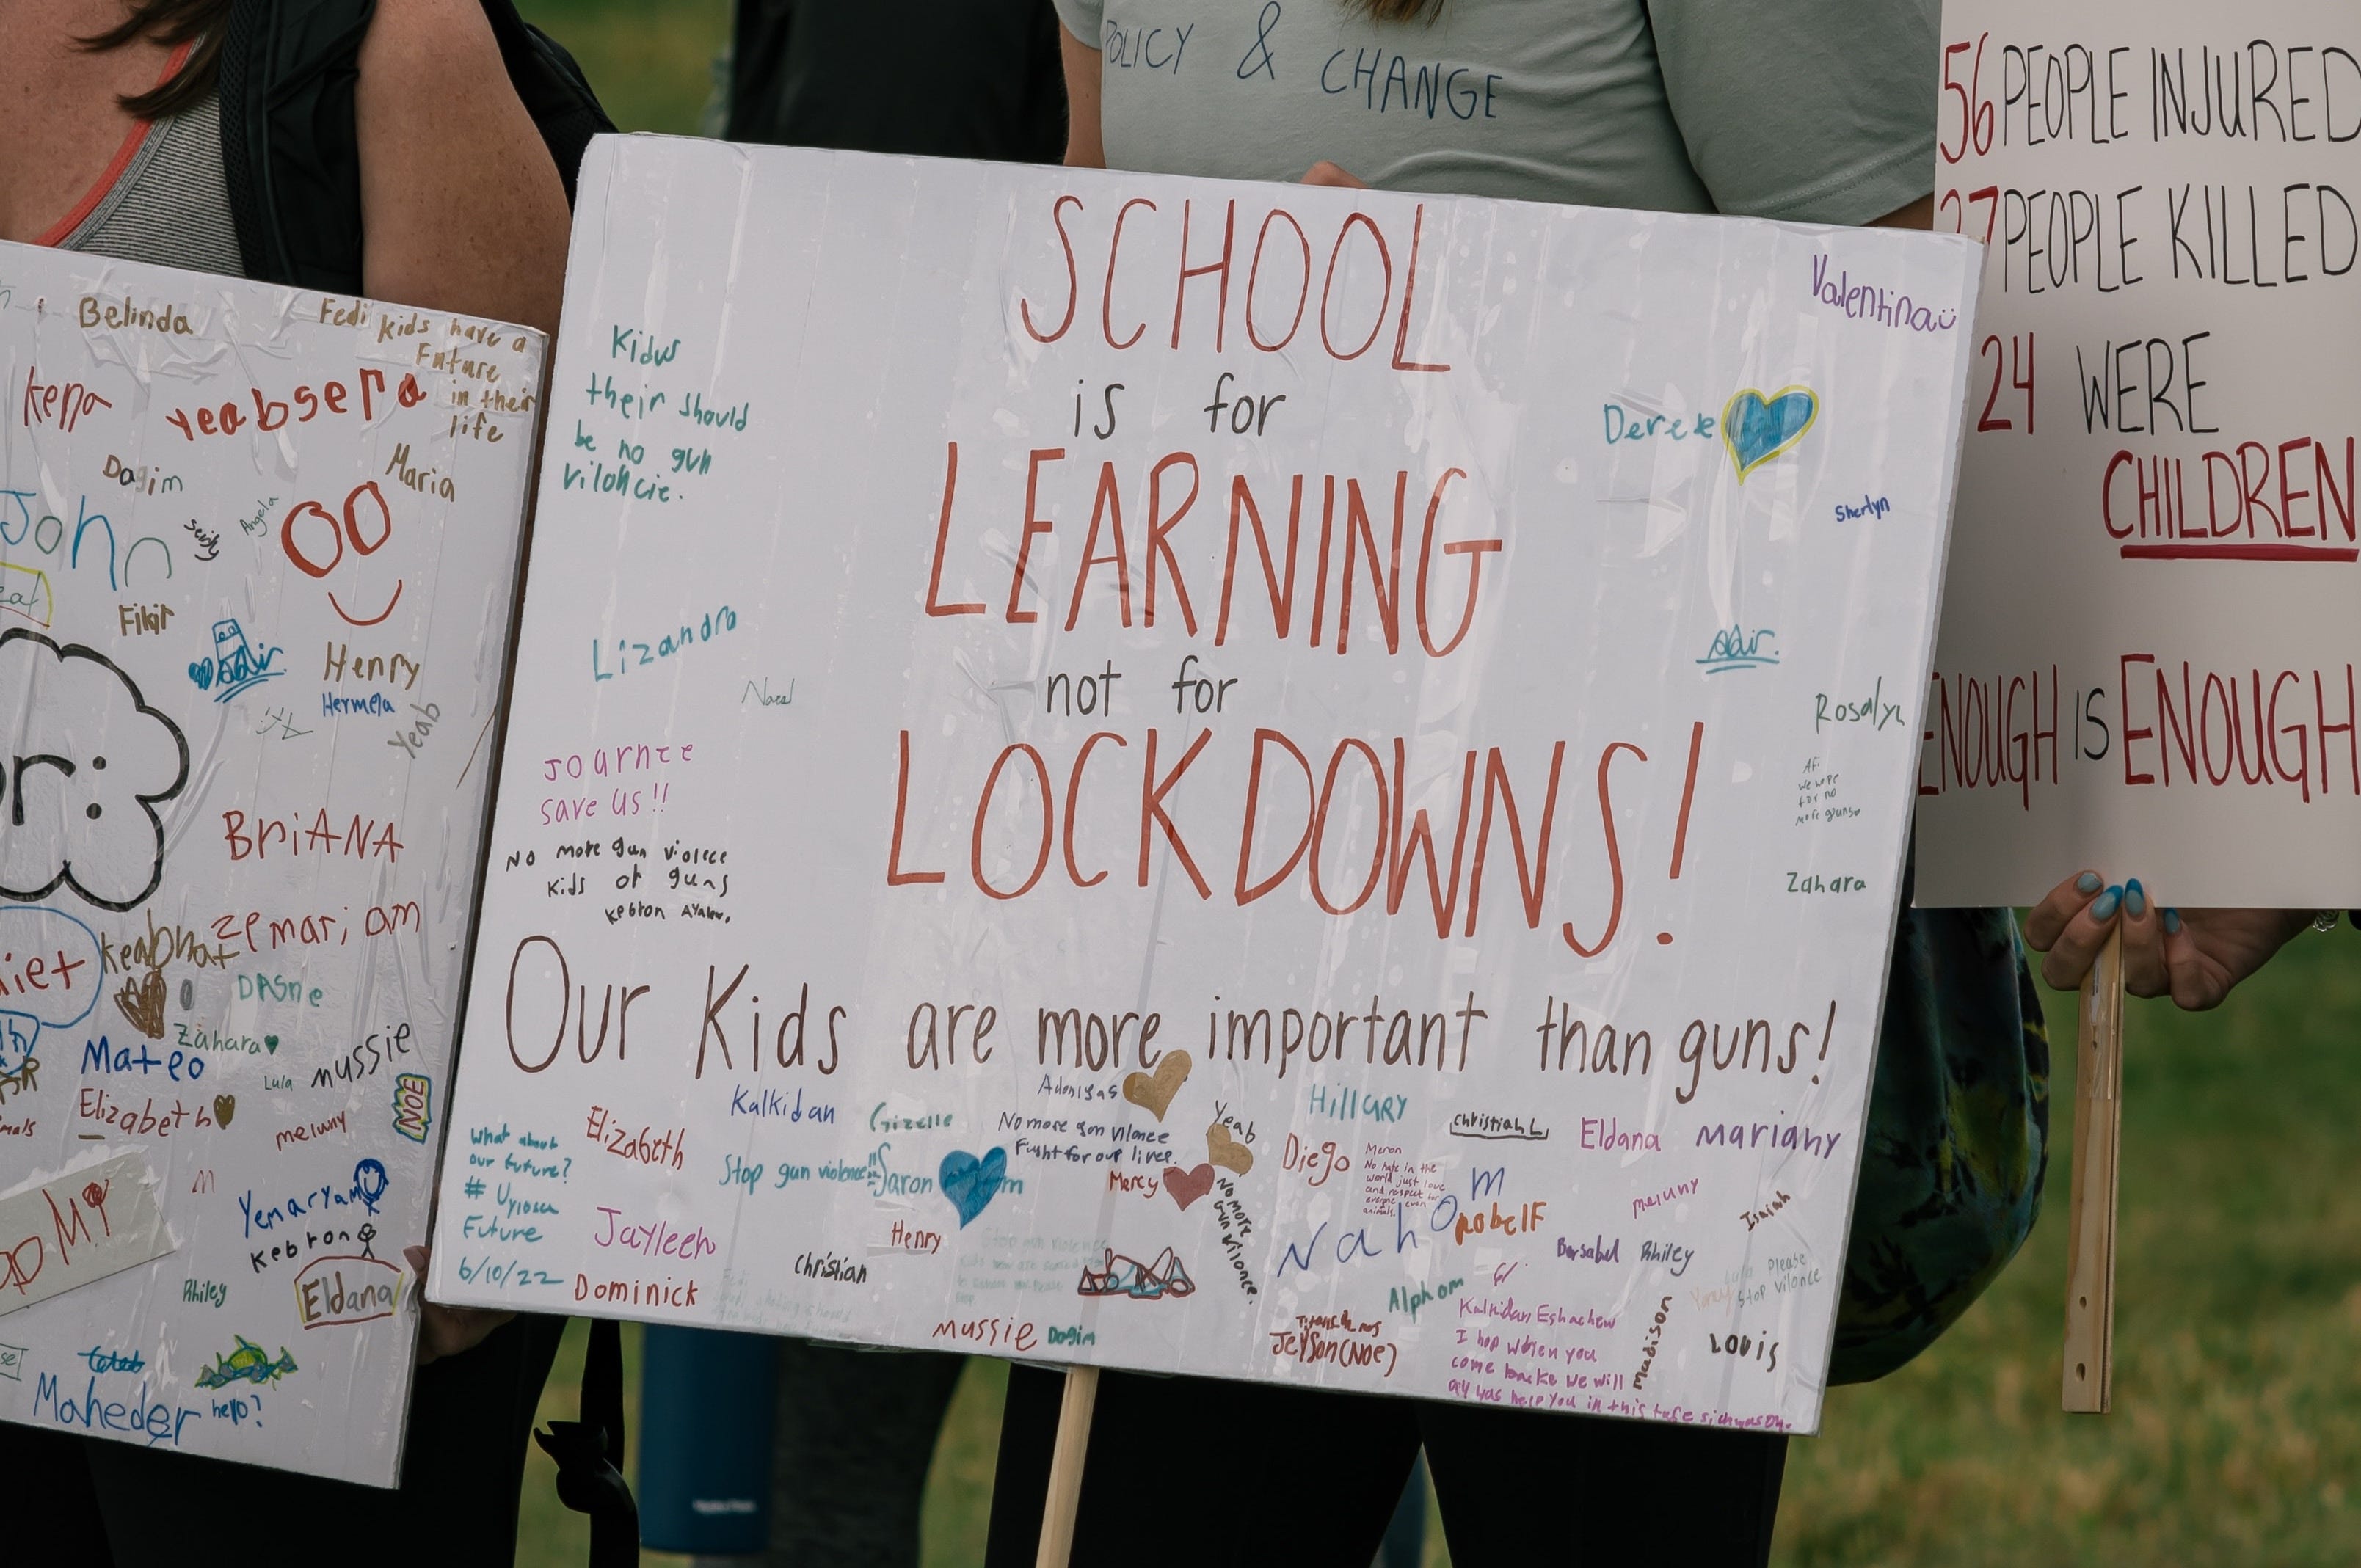 POLICY & CHANGE
56 PEOPLE INJURED
27 PEOPLE KILLED
24 WERE
CHILDREN
ENOUGH IS ENOUGH
SCHOOL
is for
LEARNING
not for
LOCKDOWNS!
Our Kids are more important than guns!
Kidus
their should
be no gun
vilohcie.
Lizandro
Nael
Journee
save us!!
No more gun violece
kids of guns
kebron
Valentina
Derek
Sherlyn
Adir.
Rosalyn
Afi
we hope
for no
more guns
Zahara
what about
our future?
Future
6/10/22
Elizabeth
Jayleen
Dominick
Kalkidan
Stop gun violence!!
Gizelle
Saron
m
Henry
Christian
Adoniyas
No more gon vilonce
Fight for our lives.
Mercy
Yeab
No more
Gun vilonce.
Mussie
Dagim
Hillary
Diego
Meron
No hate in the
world just love
and respect for
everyone even
animals.
Christian L
Eldana
Mariany
m
Naho
robelF
meluny
Isaiah
Barsabel
Rhiley
Please
Stop vilonce
Alphom
Jeyson(Noe)
Kalkidan Eshachew
I hop when you
come backe we will
Madison
Louis
Belinda
Fedi kids have a
Future
in their
life
kena
yeabsera
Dagim
Maria
John
Angela
Fikir
Adir
Henry
Hermela
Yeab
BriANA
zemariam
keabnat
DASne
Zahara
Mateo
Lula
mussie
Elizabeth
meluny
NOE
M
Yemaryam
kebron
Rhiley
Eldana
Maheder
hello?